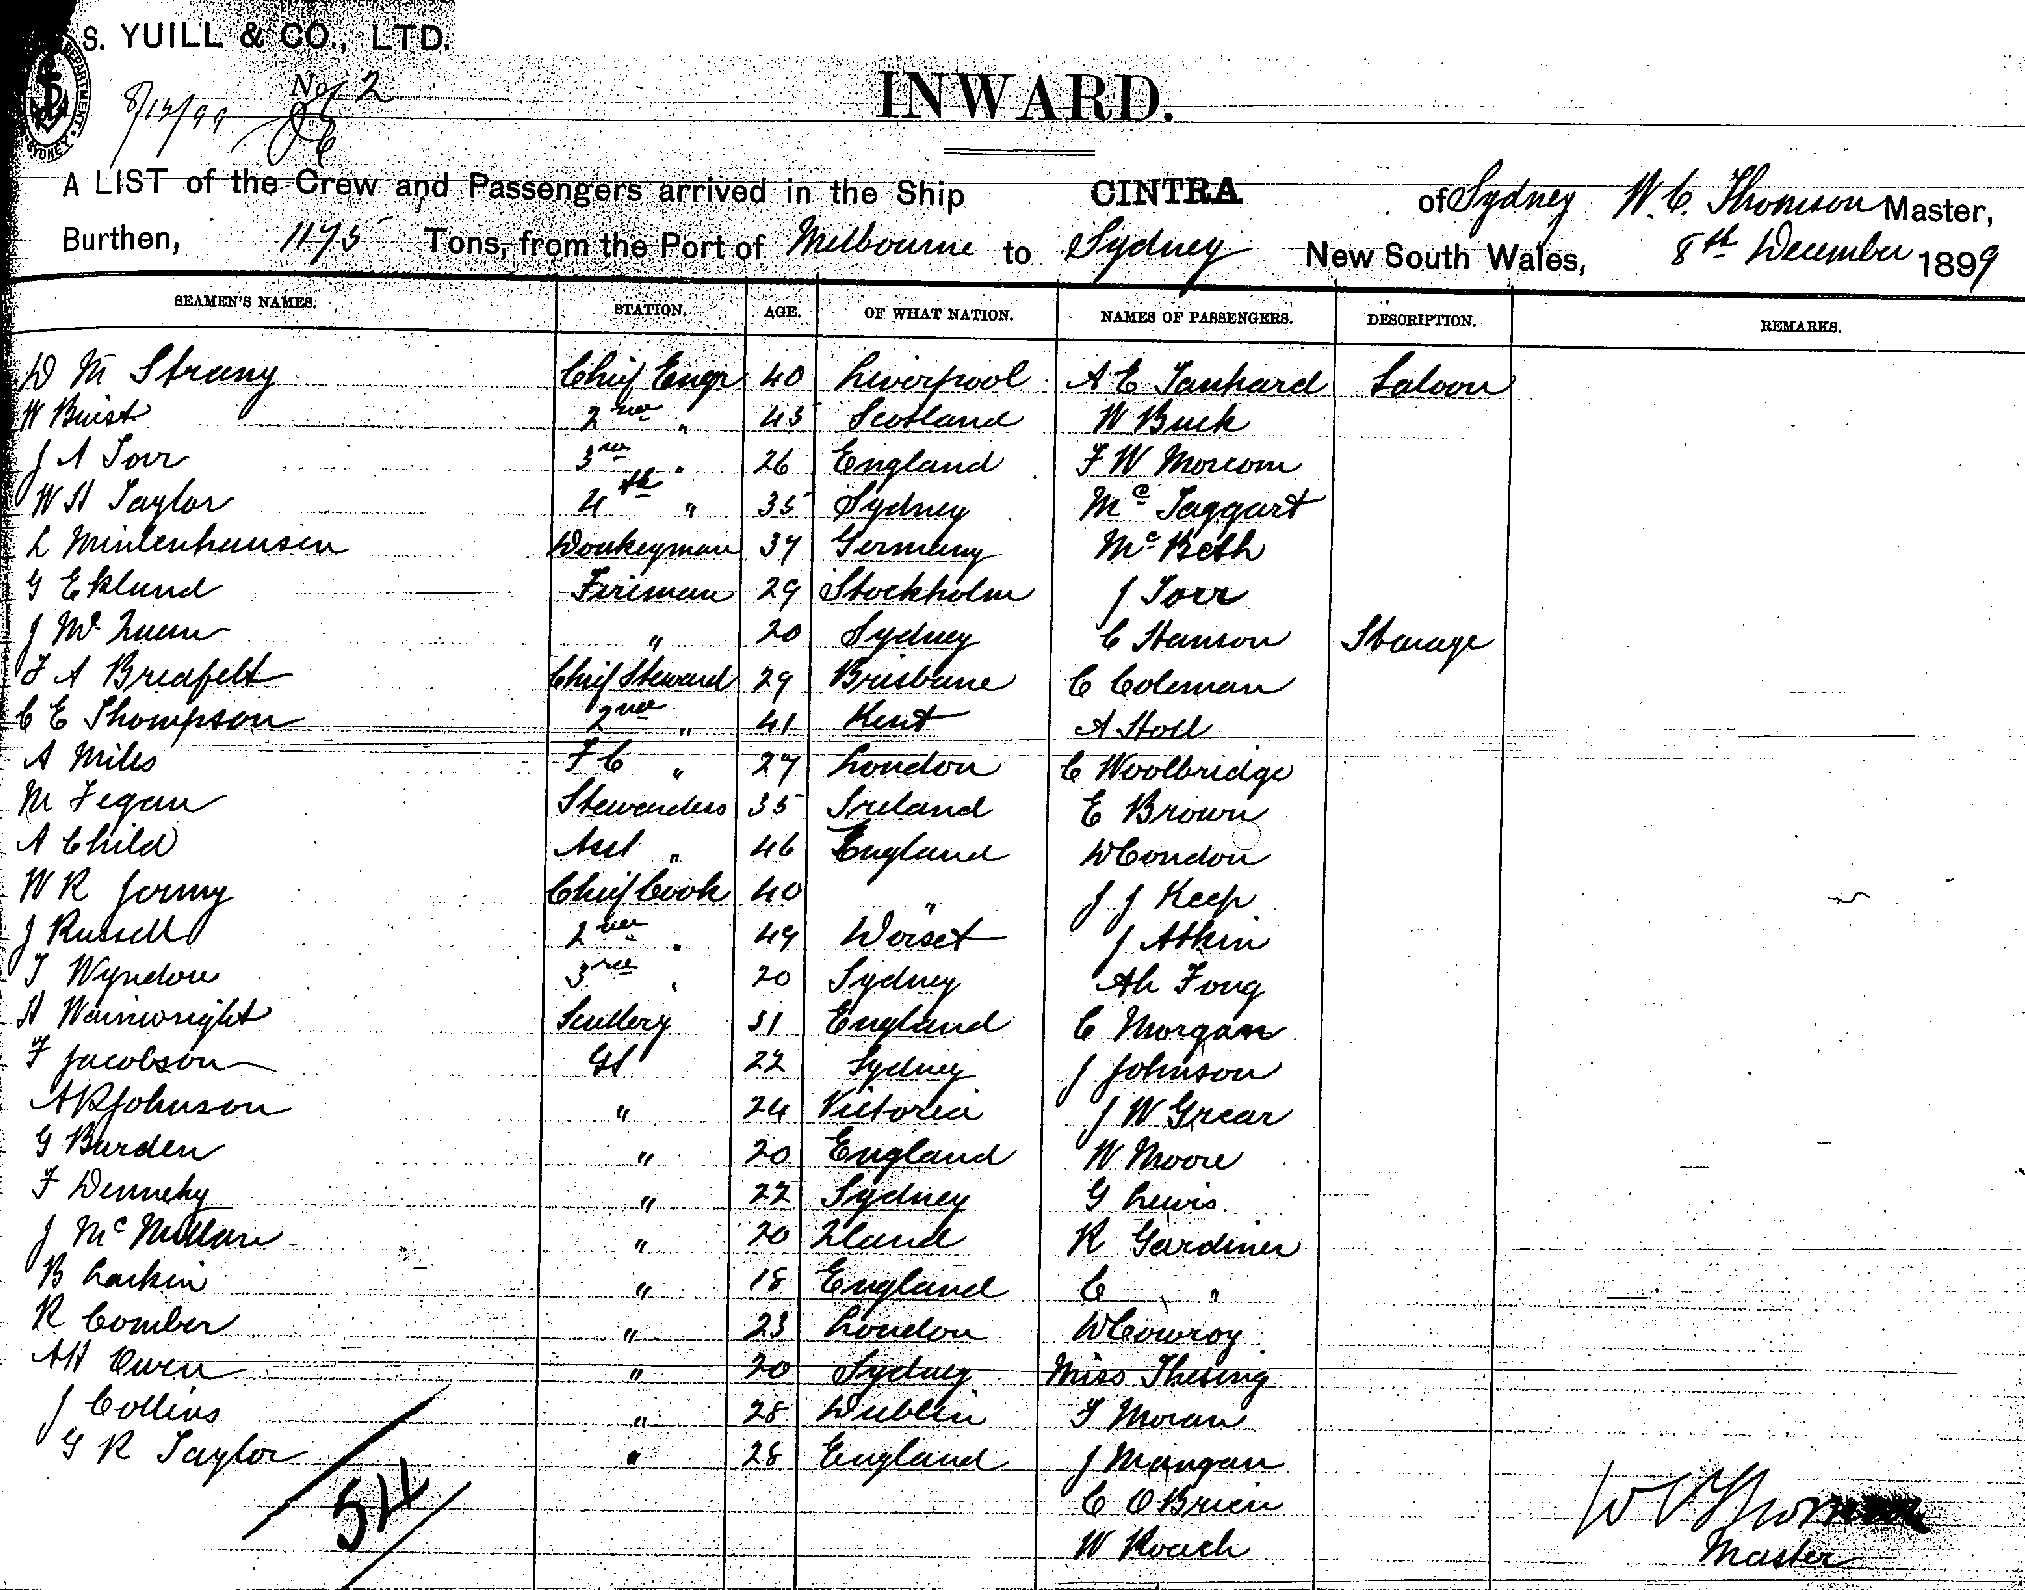 S. YUILL & CO., LTD.
8/12/99 No 2
INWARD.
A LIST of the Crew and Passengers arrived in the Ship CINTRA of Sydney W. C. Thomson Master,
Burthen, 1195 Tons, from the Port of Melbourne to Sydney New South Wales, 8th December 1899
SEAMEN'S NAMES. STATION. AGE. OF WHAT NATION. NAMES OF PASSENGERS. DESCRIPTION. REMARKS.
D M Strang Chief Engr 40 Liverpool A E Tanhard Saloon
W Buist 2nd " 45 Scotland W Buck
J A Torr 3rd " 26 England F W Morcom
W H Taylor 4th " 35 Sydney Mc Taggart
L Mintenhausen Donkeyman 37 Germany Mc Beth
G Eklund Fireman 29 Stockholm J Torr
J Mc " 20 Sydney C Hanson Sterage
F A Bredfelt Chief Steward 29 Brisbane C Coleman
C E Thompson 2nd " 41 Kent A Stoll
A Miles F C " 27 London C Woolbridge
M Fegan Stewardess 35 Ireland E Brown
A Child Asst " 46 England W Condon
W R Chief Cook 40 " J J Keep
J Russell 2nd " 49 Dorset J Atkin
T Wyndow 3rd " 20 Sydney Ah Fong
H Wainwright Scullery 31 England C Morgan
F Jacobson GS 22 Sydney J Johnson
A R Johnson " 24 Victoria J W Grear
G Burden " 20 England W Moore
F Dennehy " 22 Sydney G Lewis
J Mc Millan " 20 Zland R Gardiner
B Larkin " 18 England C "
R Comber " 23 London W Cowroy
A H Owen " 20 Sydney Miss Thesing
J Collins " 28 Dublin F Moran
G R Taylor " 28 England J Mangan
C O Brien
54 W C Thomson
W Roach Master